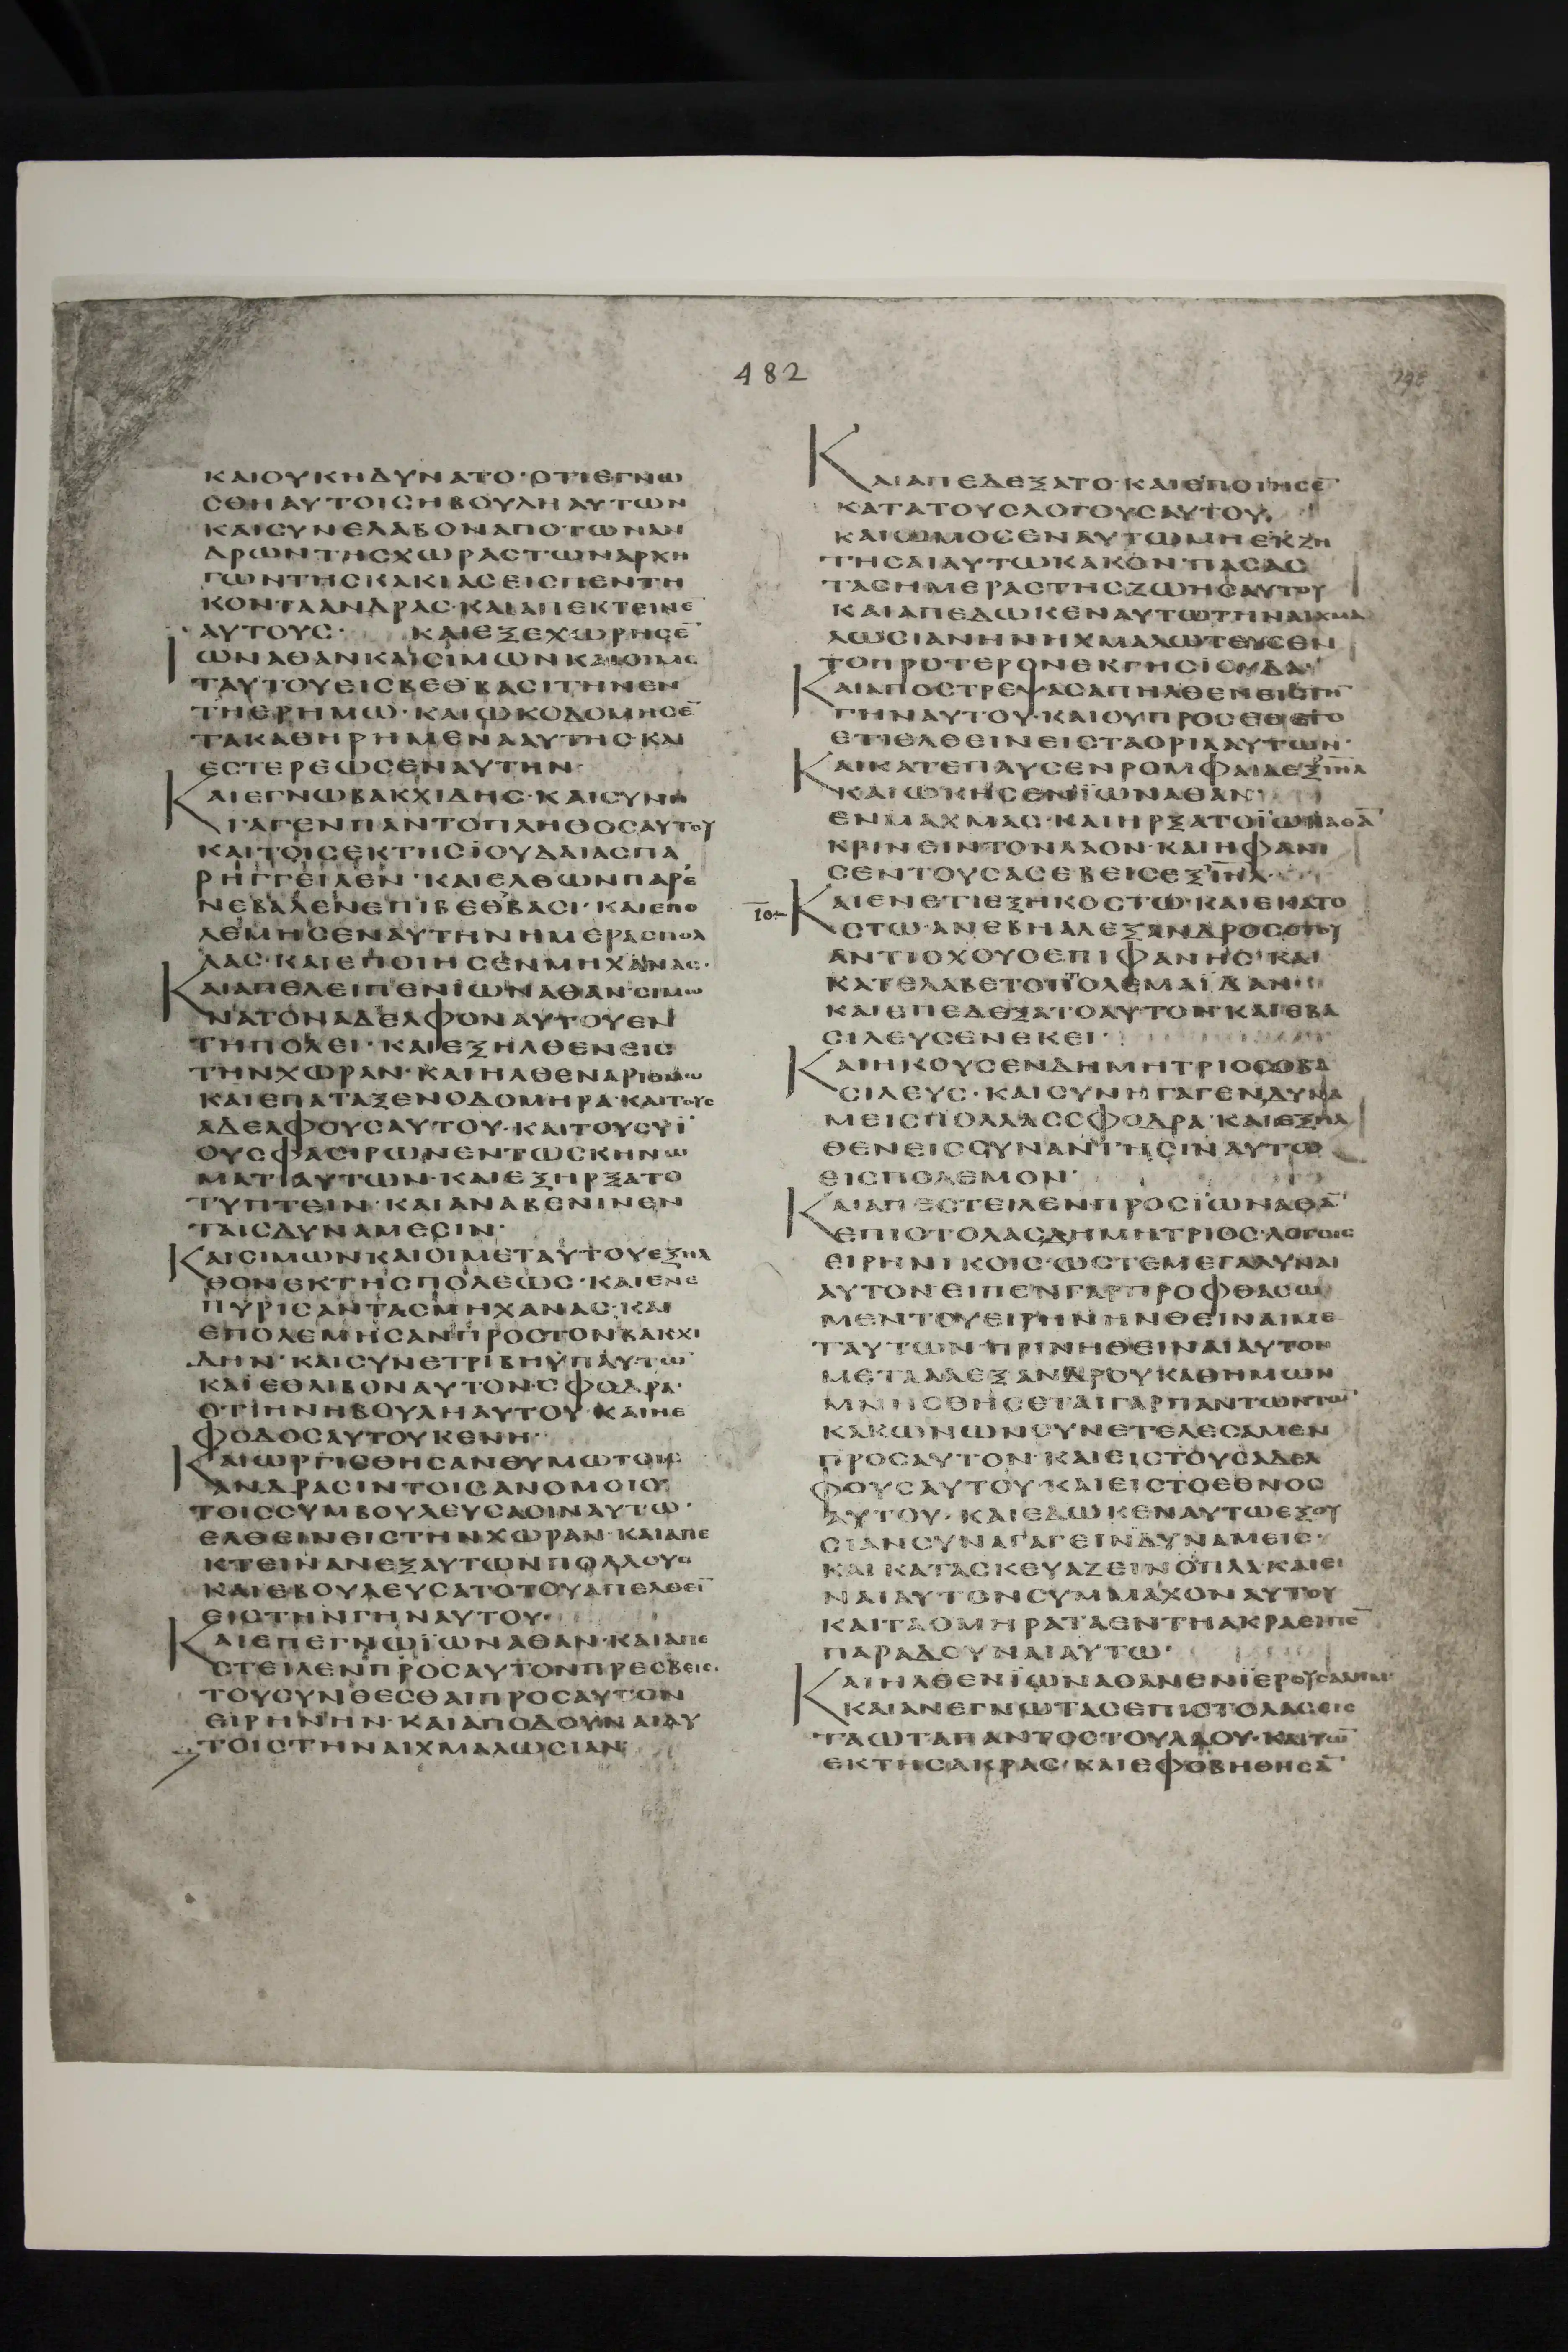 482
ΚΑΙΟΥΚΗΔΥΝΑΤΟ·ΟΤΙΕΓΝΩ
CΘΗΑΥΤΟΙCΗΒΟΥΛΗΑΥΤΩΝ
ΚΑΙCΥΝΕΛΑΒΟΝΑΠΟΤΩΝΑΝ
ΔΡΩΝΤΗCΧΩΡΑCΤΩΝΑΡΧΗ
ΓΩΝΤΗCΚΑΚΙΑCΕΙCΠΕΝΤΗ
ΚΟΝΤΑΑΝΔΡΑC·ΚΑΙΑΠΕΚΤΕΙΝΕ̅
ΑΥΤΟΥC· ΚΑΙΕΞΕΧΩΡΗCΕ̅
ΙΩΝΑΘΑΝΚΑΙCΙΜΩΝΚΑΙΟΙΜΕ
ΤΑΥΤΟΥΕΙCΒΕΘΒΑCΙΤΗΝΕΝ
ΤΗΕΡΗΜΩ·ΚΑΙΩΚΟΔΟΜΗCΕ̅
ΤΑΚΑΘΗΡΗΜΕΝΑΑΥΤΗC·ΚΑΙ
ΕCΤΕΡΕΩCΕΝΑΥΤΗΝ·
ΚΑΙΕΓΝΩΒΑΚΧΙΔΗC·ΚΑΙCΥΝΗ
ΓΑΓΕΝΠΑΝΤΟΠΛΗΘΟCΑΥΤΟΥ
ΚΑΙΤΟΙCΕΚΤΗCΪΟΥΔΑΙΑCΠΑ
ΡΗΓΓΕΙΛΕΝ·ΚΑΙΕΛΘΩΝΠΑΡΕ
ΝΕΒΑΛΕΝΕΠΙΒΕΘΒΑCΙ·ΚΑΙΕΠΟ
ΛΕΜΗCΕΝΑΥΤΗΝΗΜΕΡΑCΠΟΛ
ΛΑC·ΚΑΙΕΠΟΙΗCΕΝΜΗΧΑΝΑC·
ΚΑΙΑΠΕΛΕΙΠΕΝΪΩΝΑΘΑΝ·CΙΜΩ
ΝΑΤΟΝΑΔΕΛΦΟΝΑΥΤΟΥΕΝ
ΤΗΠΟΛΕΙ·ΚΑΙΕΞΗΛΘΕΝΕΙC
ΤΗΝΧΩΡΑΝ·ΚΑΙΗΛΘΕΝΑΡΙΘΜΩ
ΚΑΙΕΠΑΤΑΞΕΝΟΔΟΜΗΡΑ·ΚΑΙΤΟΥC
ΑΔΕΛΦΟΥCΑΥΤΟΥ·ΚΑΙΤΟΥCΥΪ
ΟΥCΦΑCΙΡΩΝΕΝΤΩCΚΗΝΩ
ΜΑΤΙΑΥΤΩΝ·ΚΑΙΕΞΗΡΞΑΤΟ
ΤΥΠΤΕΙΝ·ΚΑΙΑΝΑΒΕΝΙΝΕΝ
ΤΑΙCΔΥΝΑΜΕCΙΝ·
ΚΑΙCΙΜΩΝΚΑΙΟΙΜΕΤΑΥΤΟΥΕΞΗΛ
ΘΟΝΕΚΤΗCΠΟΛΕΩC·ΚΑΙΕΝΕ
ΠΥΡΙCΑΝΤΑCΜΗΧΑΝΑC·ΚΑΙ
ΕΠΟΛΕΜΗCΑΝΠΡΟCΤΟΝΒΑΚΧΙ
ΔΗΝ·ΚΑΙCΥΝΕΤΡΙΒΗΫΠΑΥΤΩ̅
ΚΑΙΕΘΛΙΒΟΝΑΥΤΟΝ·CΦΟΔΡΑ·
ΟΤΙΗΝΗΒΟΥΛΗΑΥΤΟΥ·ΚΑΙΗΕ
ΦΟΔΟCΑΥΤΟΥΚΕΝΗ·
ΚΑΙΩΡΓΙCΘΗCΑΝΘΥΜΩΤΟΙC
ΑΝΔΡΑCΙΝΤΟΙCΑΝΟΜΟΙC
ΤΟΙCCΥΜΒΟΥΛΕΥCΑCΙΝΑΥΤΩ·
ΕΛΘΕΙΝΕΙCΤΗΝΧΩΡΑΝ·ΚΑΙΑΠΕ
ΚΤΕΙΝΑΝΕΞΑΥΤΩΝΠΟΛΛΟΥC
ΚΑΙΕΒΟΥΛΕΥCΑΤΟΤΟΥΑΠΕΛΘΕΙ̅
ΕΙCΤΗΝΓΗΝΑΥΤΟΥ·
ΚΑΙΕΠΕΓΝΩΪΩΝΑΘΑΝ·ΚΑΙΑΠΕ
CΤΕΙΛΕΝΠΡΟCΑΥΤΟΝΠΡΕCΒΕΙC·
ΤΟΥCΥΝΘΕCΘΑΙΠΡΟCΑΥΤΟΝ
ΕΙΡΗΝΗΝ·ΚΑΙΑΠΟΔΟΥΝΑΙΑΥ
ΤΟΙCΤΗΝΑΙΧΜΑΛΩCΙΑΝ·
ΚΑΙΑΠΕΔΕΞΑΤΟ·ΚΑΙΕΠΟΙΗCΕ̅
ΚΑΤΑΤΟΥCΛΟΓΟΥCΑΥΤΟΥ·
ΚΑΙΩΜΟCΕΝΑΥΤΩΜΗΕΚΖΗ
ΤΗCΑΙΑΥΤΩΚΑΚΟΝΠΑCΑC
ΤΑCΗΜΕΡΑCΤΗCΖΩΗCΑΥΤΟΥ
ΚΑΙΑΠΕΔΩΚΕΝΑΥΤΩΤΗΝΑΙΧΜΑ
ΛΩCΙΑΝΗΝΗΧΜΑΛΩΤΕΥCΕΝ
ΤΟΠΡΟΤΕΡΟΝΕΚΓΗCΪΟΥΔΑ·
ΚΑΙΑΠΟCΤΡΕΨΑCΑΠΗΛΘΕΝΕΙCΤΗ̅
ΓΗΝΑΥΤΟΥ·ΚΑΙΟΥΠΡΟCΕΘΕΤΟ
ΕΤΙΕΛΘΕΙΝΕΙCΤΑΟΡΙΑΑΥΤΩΝ·
ΚΑΙΚΑΤΕΠΑΥCΕΝΡΟΜΦΑΙΑΕΞΙ̅Η̅Λ̅
ΚΑΙΩΚΗCΕΝΪΩΝΑΘΑΝ
ΕΝΜΑΧΜΑC·ΚΑΙΗΡΞΑΤΟΪΩΝΑΘΑ̅
ΚΡΙΝΕΙΝΤΟΝΛΑΟΝ·ΚΑΙΗΦΑΝΙ
CΕΝΤΟΥCΑCΕΒΕΙCΕΞΙ̅Η̅Λ̅·
ΚΑΙΕΝΕΤΙΕΞΗΚΟCΤΩ·ΚΑΙΕΚΑΤΟ
CΤΩ·ΑΝΕΒΗΑΛΕΞΑΝΔΡΟCΟΤΟΥ
ΑΝΤΙΟΧΟΥΟΕΠΙΦΑΝΗC·ΚΑΙ
ΚΑΤΕΛΑΒΕΤΟΠΤΟΛΕΜΑΪΔΑΝ·
ΚΑΙΕΠΕΔΕΞΑΤΟΑΥΤΟΝ·ΚΑΙΕΒΑ
CΙΛΕΥCΕΝΕΚΕΙ·
ΚΑΙΗΚΟΥCΕΝΔΗΜΗΤΡΙΟCΟΒΑ
CΙΛΕΥC·ΚΑΙCΥΝΗΓΑΓΕΝΔΥΝΑ
ΜΕΙCΠΟΛΛΑCCΦΟΔΡΑ·ΚΑΙΕΞΗΛ
ΘΕΝΕΙCCΥΝΑΝΤΗCΙΝΑΥΤΩ
ΕΙCΠΟΛΕΜΟΝ·
ΚΑΙΑΠΕCΤΕΙΛΕΝΠΡΟCΪΩΝΑΘΑ̅
ΕΠΙCΤΟΛΑCΔΗΜΗΤΡΙΟC·ΛΟΓΟΙC
ΕΙΡΗΝΙΚΟΙC·ΩCΤΕΜΕΓΑΛΥΝΑΙ
ΑΥΤΟΝ·ΕΙΠΕΝΓΑΡΠΡΟΦΘΑCΩ
ΜΕΝΤΟΥΕΙΡΗΝΗΝΘΕΙΝΑΙΜΕ
ΤΑΥΤΩΝ·ΠΡΙΝΗΘΕΙΝΑΙΑΥΤΟΝ
ΜΕΤΑΑΛΕΞΑΝΔΡΟΥΚΑΘΗΜΩΝ
ΜΝΗCΘΗCΕΤΑΙΓΑΡΠΑΝΤΩΝΤΩ̅
ΚΑΚΩΝΩΝCΥΝΕΤΕΛΕCΑΜΕΝ
ΠΡΟCΑΥΤΟΝ·ΚΑΙΕΙCΤΟΥCΑΔΕΛ
ΦΟΥCΑΥΤΟΥ·ΚΑΙΕΙCΤΟΕΘΝΟC
ΑΥΤΟΥ·ΚΑΙΕΔΩΚΕΝΑΥΤΩΕΞΟΥ
CΙΑΝCΥΝΑΓΑΓΕΙΝΔΥΝΑΜΕΙC·
ΚΑΙΚΑΤΑCΚΕΥΑΖΕΙΝΟΠΛΑ·ΚΑΙΕΙ
ΝΑΙΑΥΤΟΝCΥΜΜΑΧΟΝΑΥΤΟΥ
ΚΑΙΤΑΟΜΗΡΑΤΑΕΝΤΗΑΚΡΑΕΙΠΕ̅
ΠΑΡΑΔΟΥΝΑΙΑΥΤΩ·
ΚΑΙΗΛΘΕΝΪΩΝΑΘΑΝΕΝΪΕΡΟΥCΑΛΗΜ·
ΚΑΙΑΝΕΓΝΩΤΑCΕΠΙCΤΟΛΑCΕΙC
ΤΑΩΤΑΠΑΝΤΟCΤΟΥΛΑΟΥ·ΚΑΙΤΩ̅
ΕΚΤΗCΑΚΡΑC·ΚΑΙΕΦΟΒΗΘΗCΑ̅